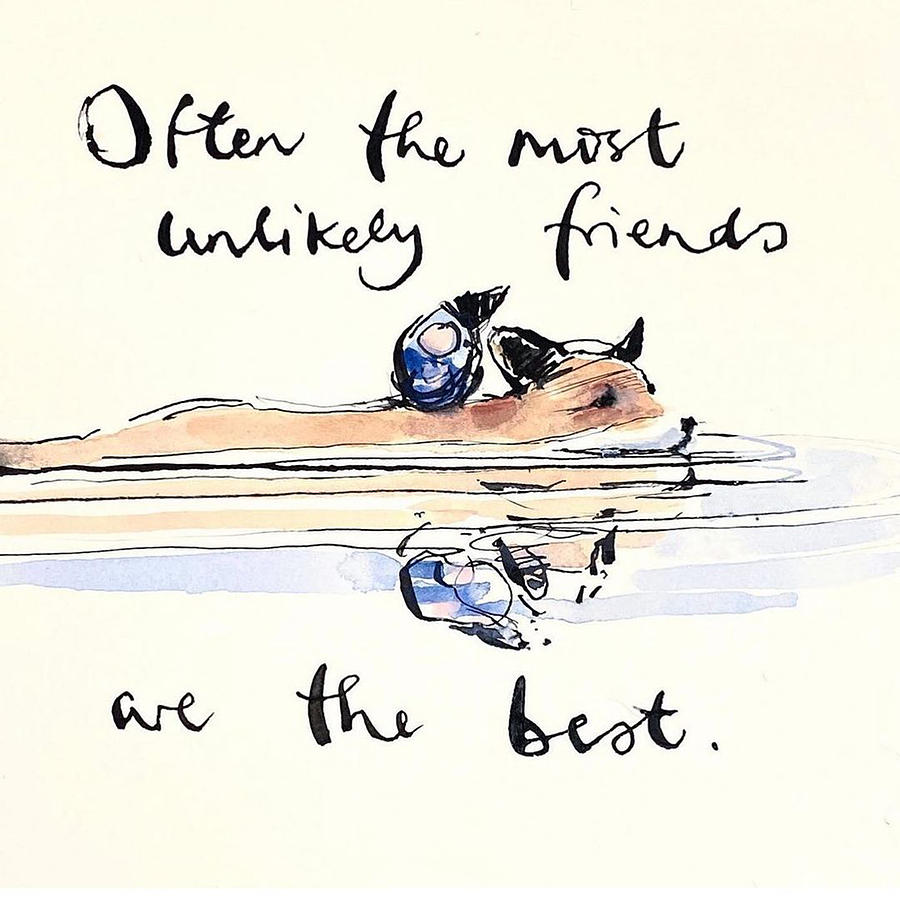 Often the most
unlikely friends
are the best.